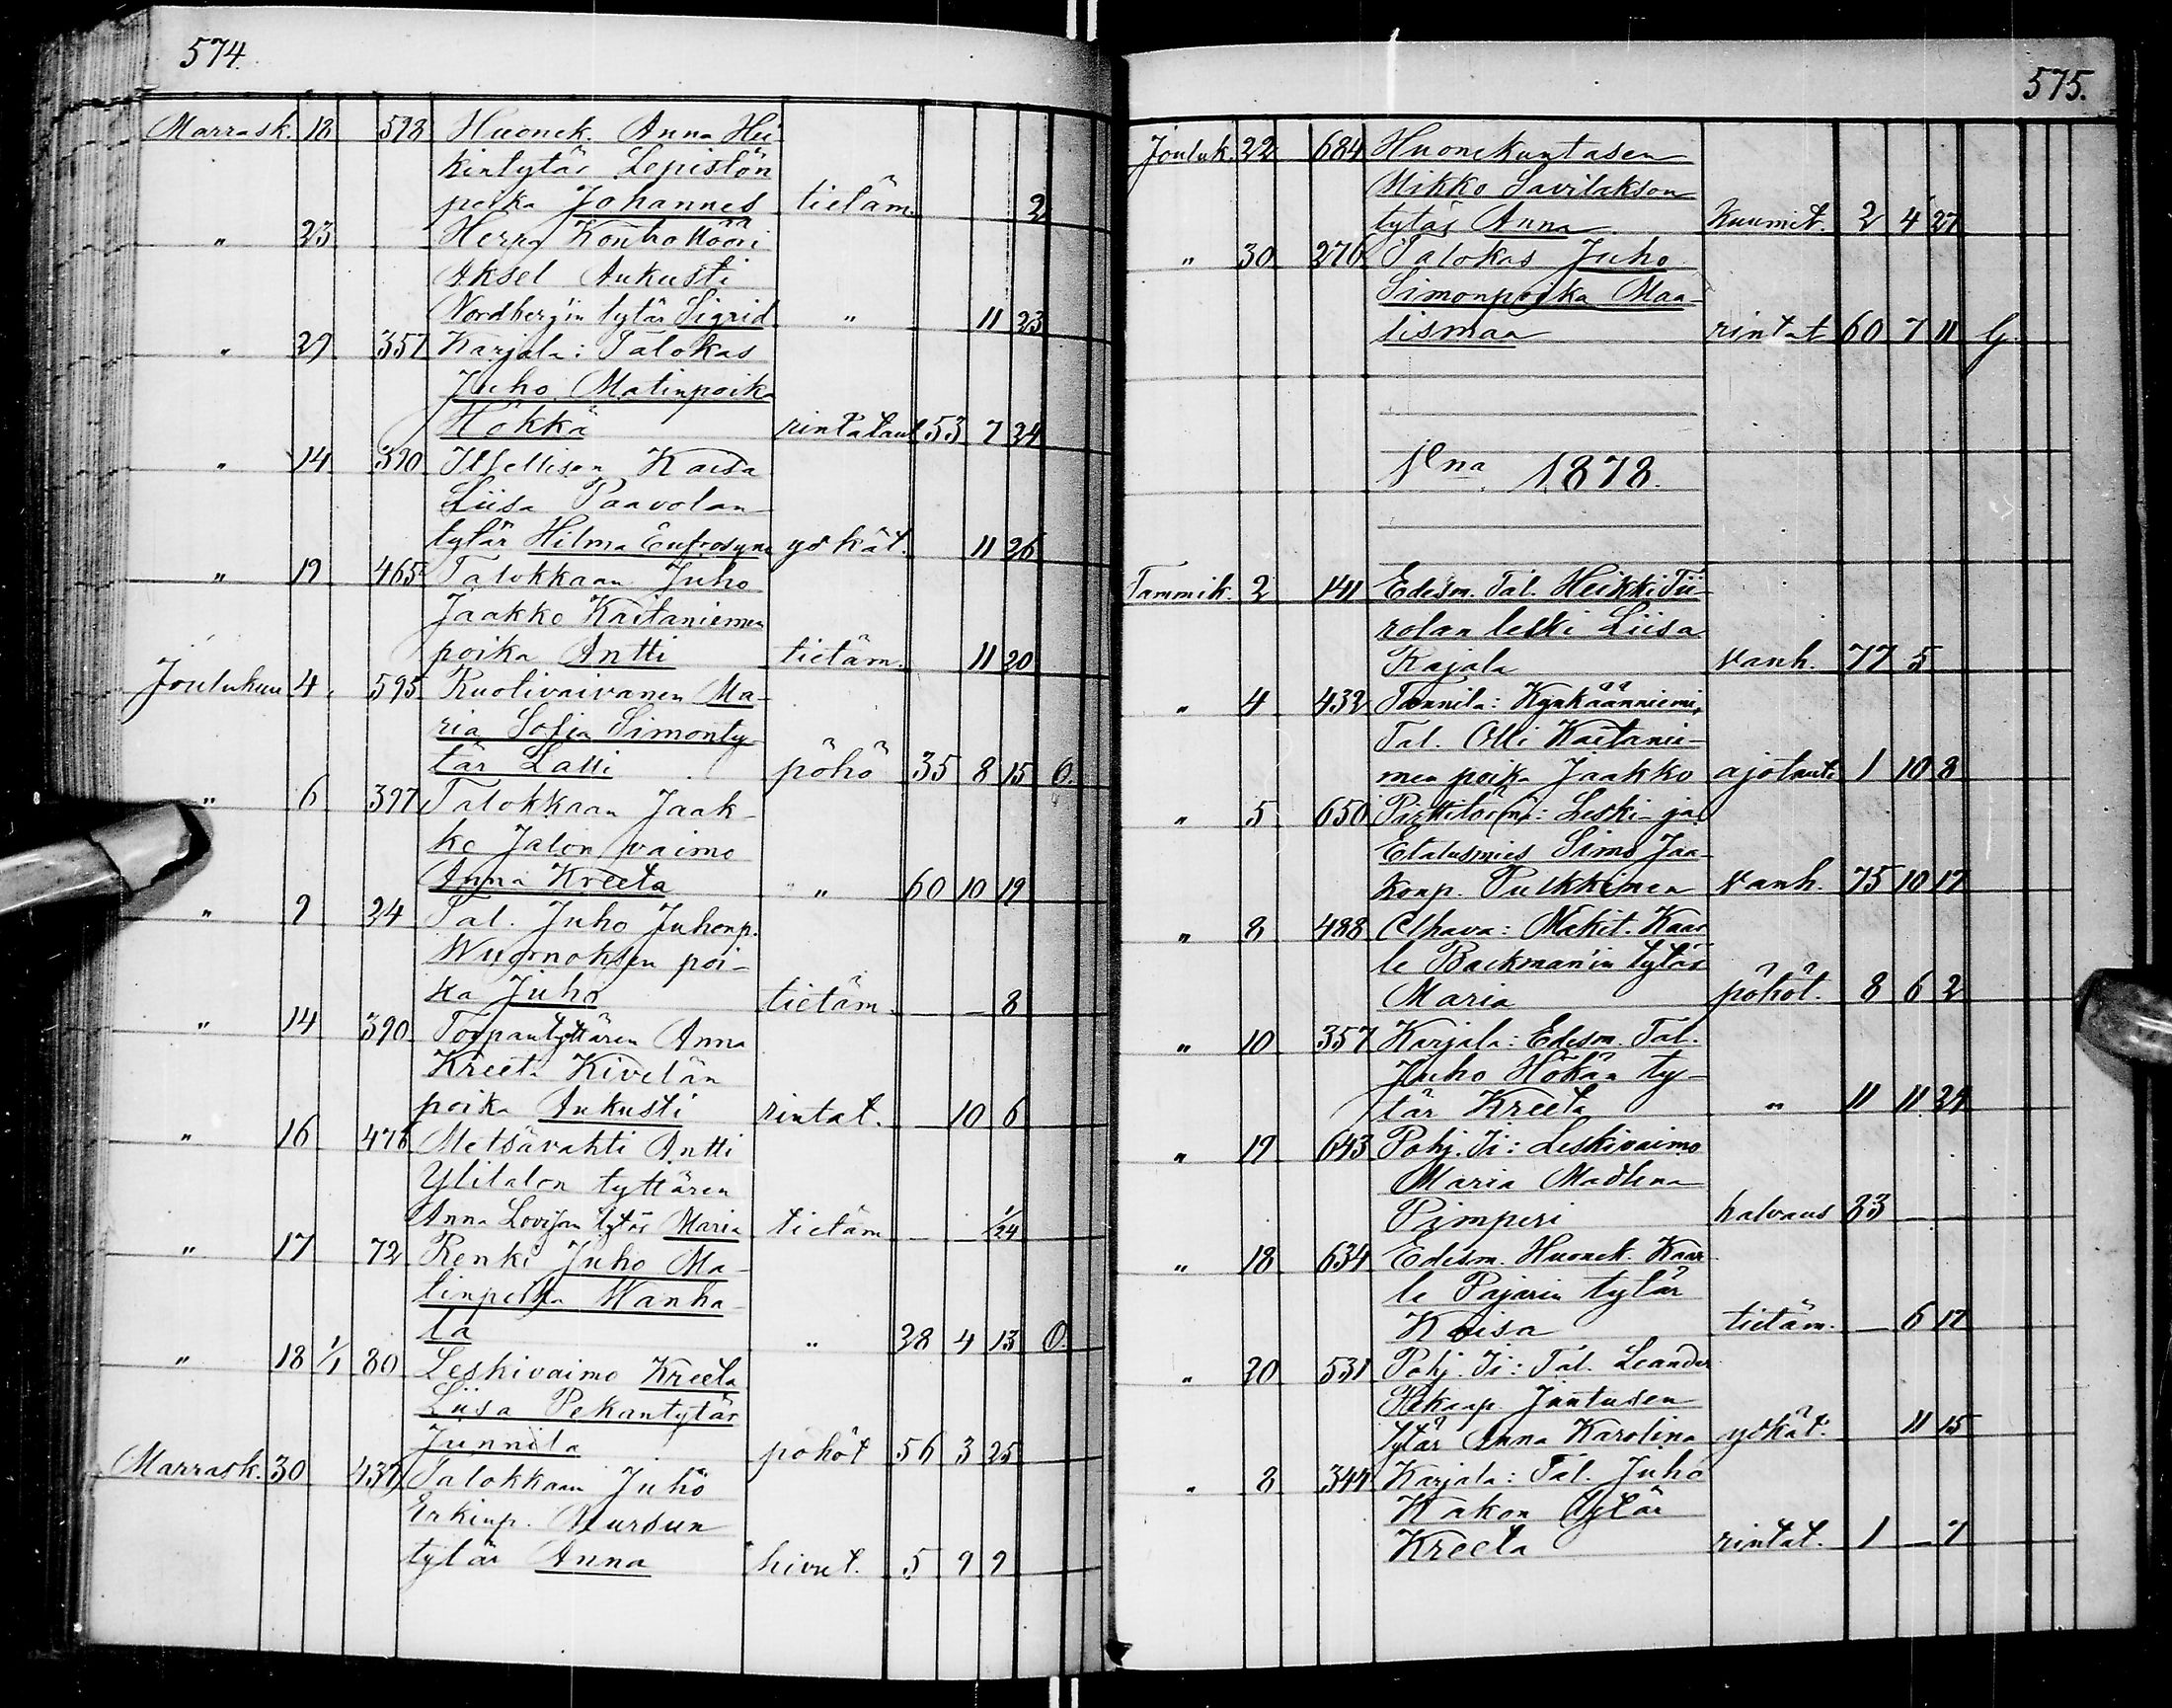 574.
Marrask. 18 598 Huonek. Anna Hei-
kintytär Lepistön
poika Johannes tietäm. 2
" 23 Herra Konttrollööri
Aksel Aukusti
Nordberg'in tytär Sigrid " 11 23
" 29 357 Karjala: Talokas
Juho Matinpoika
Hökkä rintataut 53 7 24
" 14 390 Itsellisen Kaisa
Liisa Paavolan
tytär Hilma Eufrosyne yskät. 11 26
" 19 465 Talokkaan Juho
Jaakko Kaitaniemen
poika Antti tietäm. 11 20
Joulukuu 4. 595 Ruotivaivanen Ma-
ria Sofia Simonty-
tär Lalli pöhö 35 8 15 O.
" 6 397 Talokkaan Jaak-
ko Jalon vaimo
Anna Kreeta " 60 10 19
" 9 24 Tal. Juho Juhonp.
Wuornoksen poi-
ka Juho tietäm. — — 8
" 14 390 Torpantyttären Anna
Kreeta Kivelän
poika Aukusti rintat. — 10 6
" 16 476 Metsävahti Antti
Ylitalon tyttären
Anna Lovisan tytär Maria tietäm — — 1/24
" 17 72 Renki Juho Ma-
tinpoika Wanha-
la " 28 4 13 O.
" 18 1/1 80 Leskivaimo Kreeta
Liisa Pekantytär
Junnila pöhöt 56 3 25
Marrask. 30 437 Talokkaan Juho
Erkinp. Aursun
tytär Anna hivut. 5 9 9
575.
Jouluk. 22 684 Huonekuntasen
Mikko Savilakson
tytär Anna kuumet. 2 4 27
" 30 276 Talokas Juho
Simonpoika Maa-
lismaa rintat 60 7 11 G
Vna 1878.
Tammik. 2 141 Edesm. Tal. Heikki Tii-
rolan leski Liisa
Kajala vanh. 77 5
" 4 432 Tannila: Kynkäänniemi,
Tal. Olli Kaitanie-
men poika Jaakko ajotauti 1 10 8
" 5 650 Leski- ja
Etalusmies Simo Jaa-
konp. Pulkkinen vanh. 75 10 17
" 8 488 Olhava: Mäkit. Kaar
le Backman'in tytär
Maria pöhöt. 8 6 2
" 10 357 Karjala: Edesm. Tal.
Juho Hökän ty-
tär Kreeta " 11 11 24
" 19 643 Pohj. Ii: Leskivaimo
Maria Madlena
Pimperi halvaus 83 — —
" 18 634 Edesm. Huonek. Kaar
le Pajarin tytär
Kaisa tietäm. — 6 17
" 20 531 Pohj. Ii: Tal. Leander
Jäntusen
tytär Anna Karolina yskät. 11 15
" 8 344 Karjala: Tal. Juho
Kakon tytär
Kreeta rintat. 1 — 7